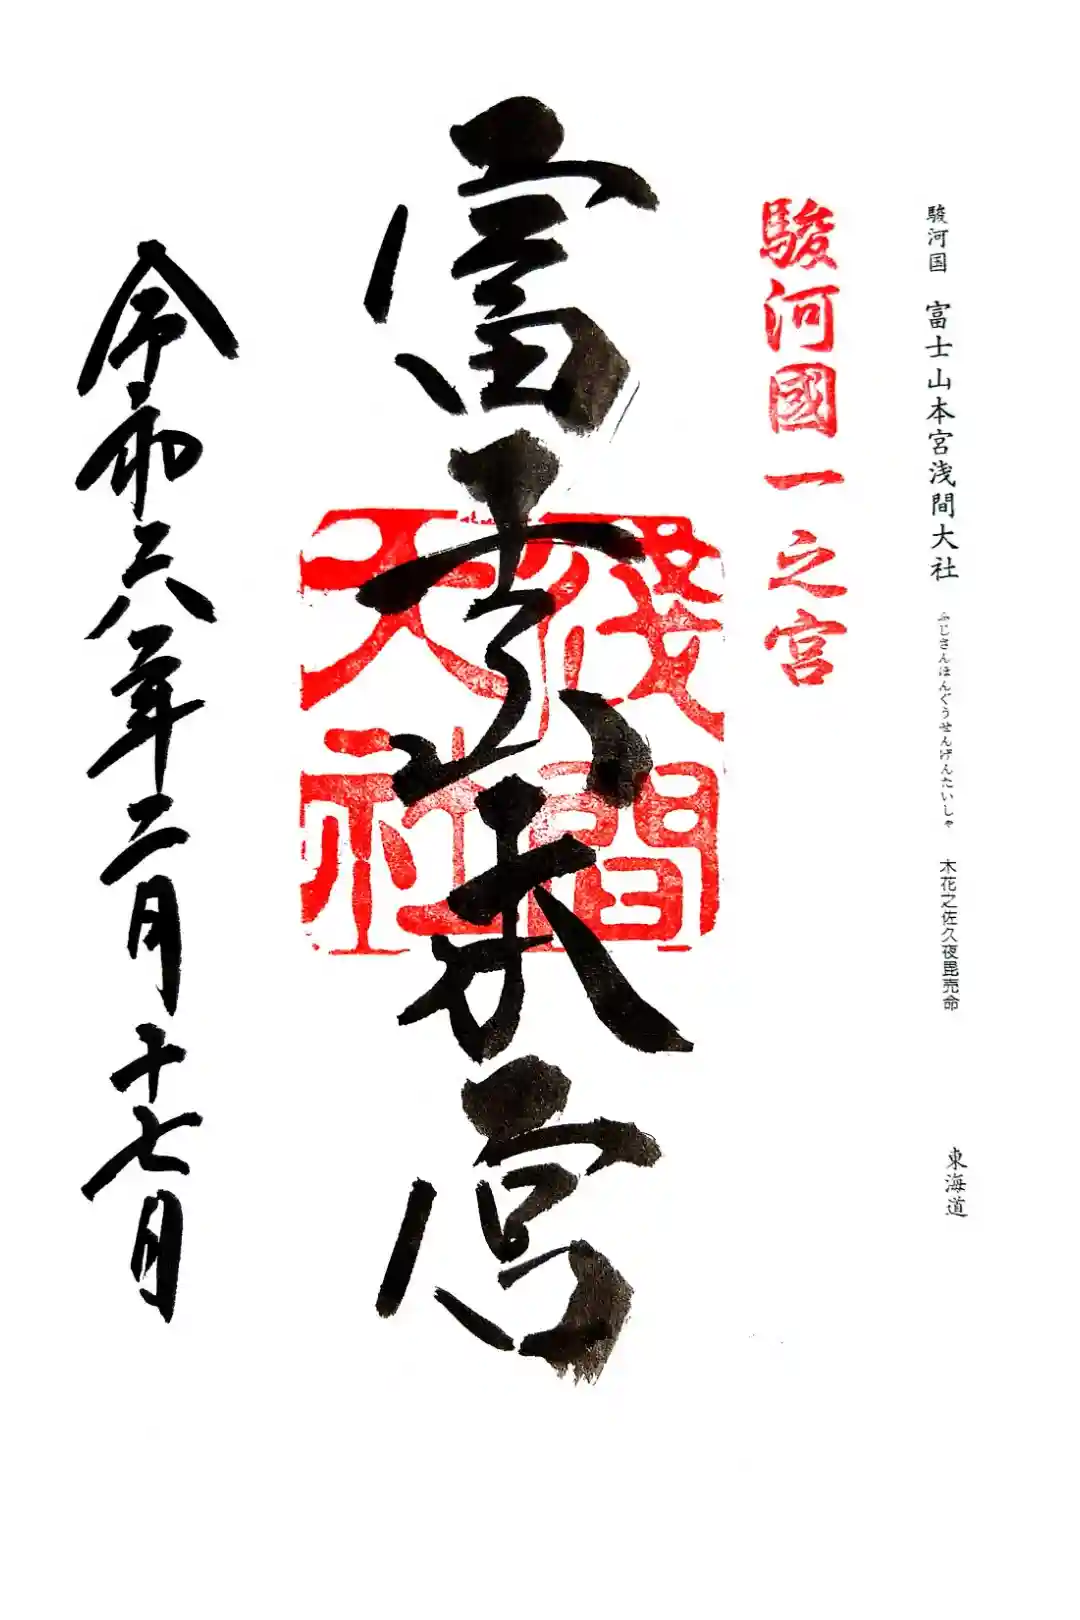 駿河国　富士山本宮浅間大社　ふじさんほんぐうせんげんたいしゃ　木花之佐久夜毘売命　東海道
駿河國一之宮
富士山本宮
淺間大社
令和六年二月十七日